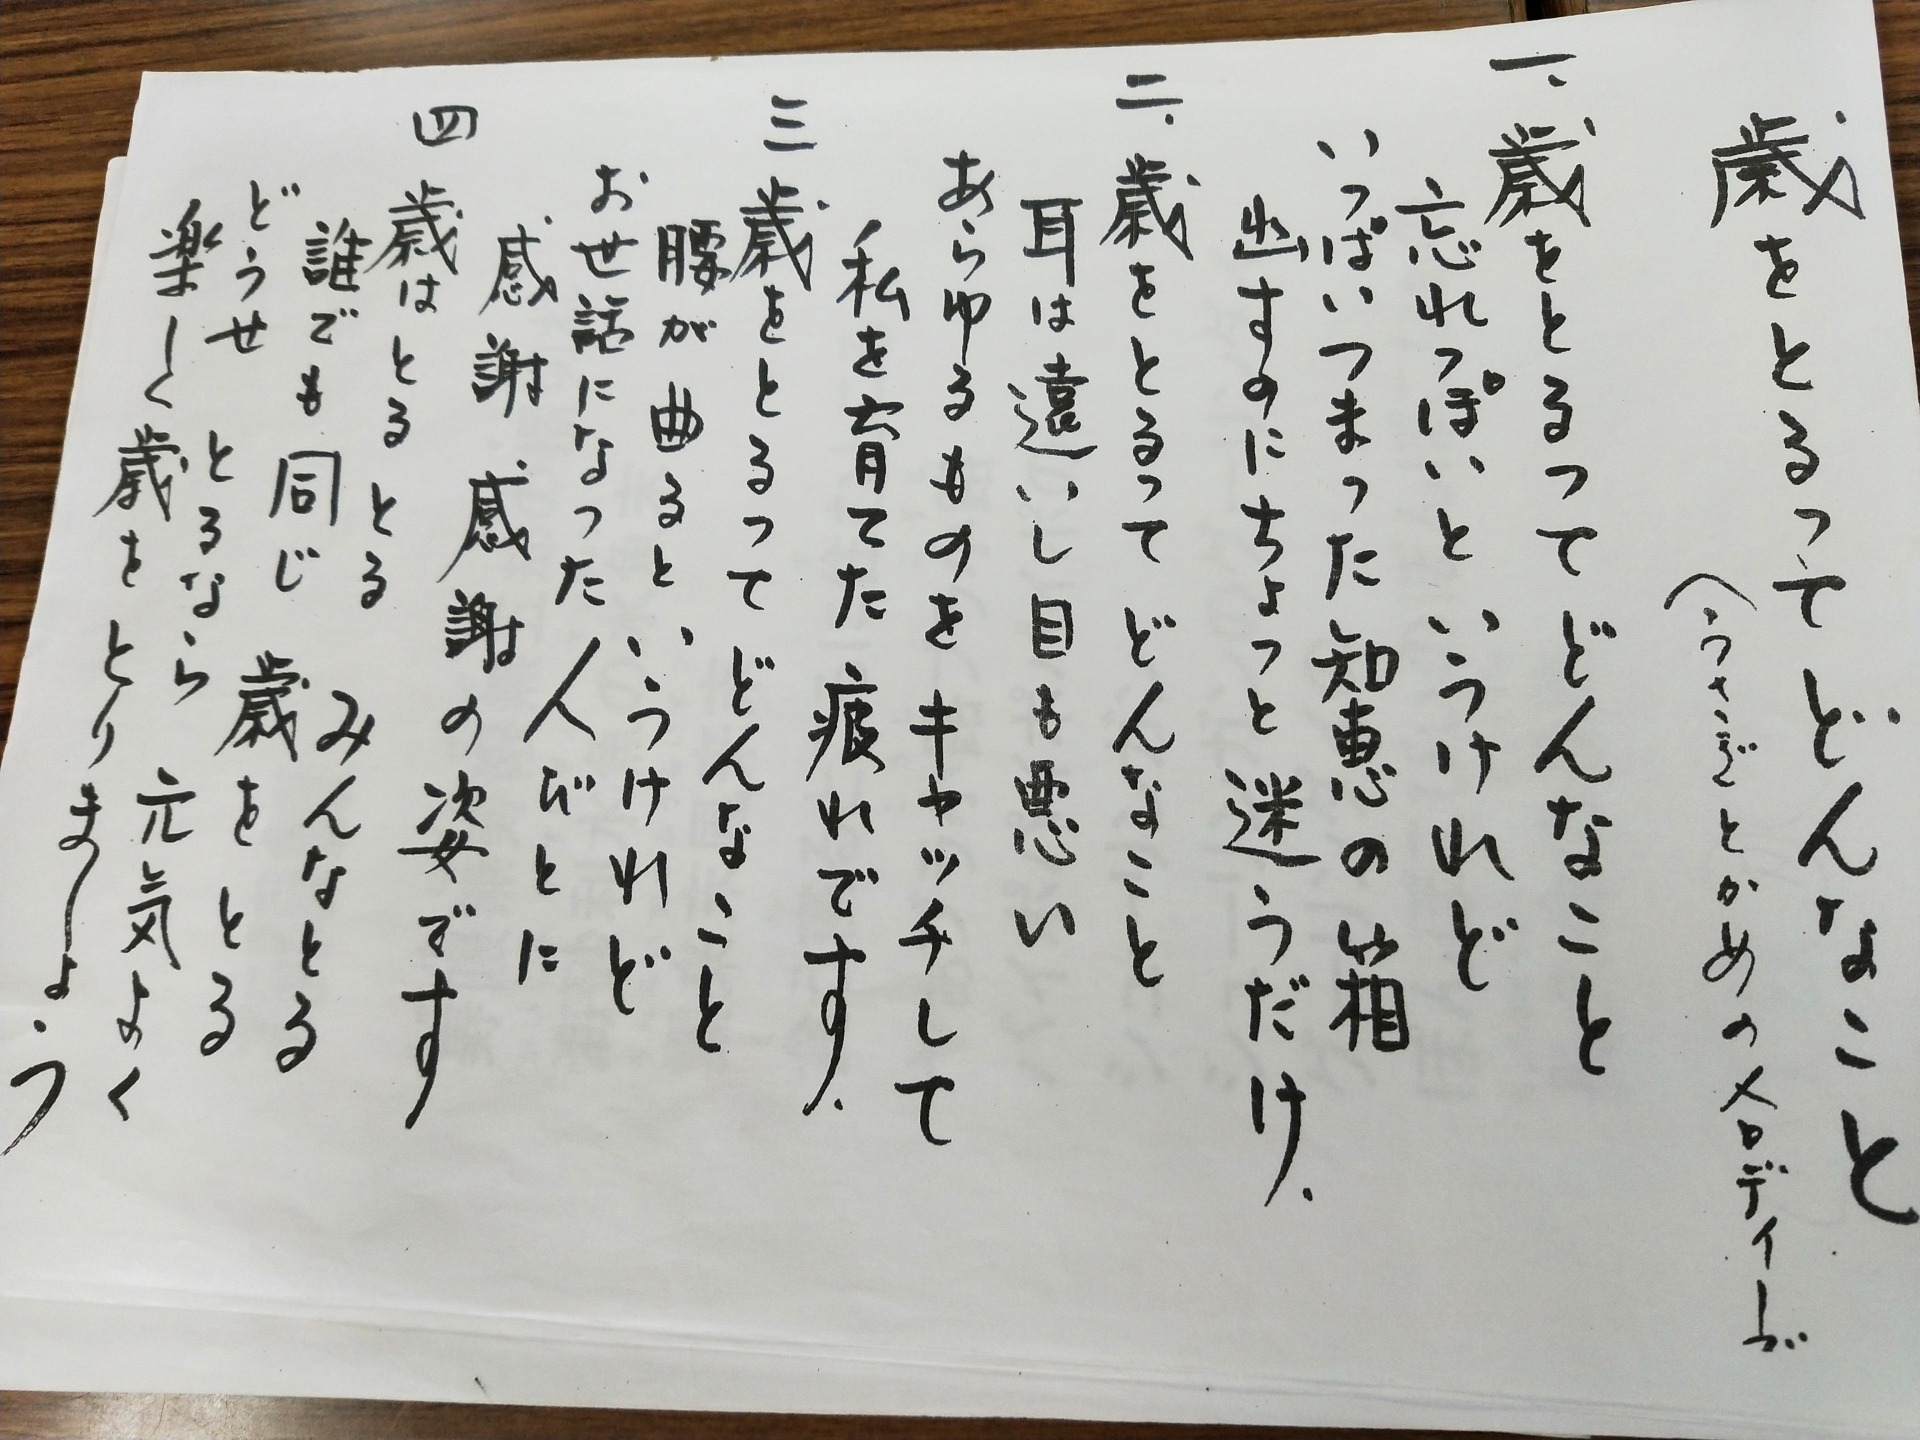 歳をとるってどんなこと
(うさぎとかめのメロディーで
一、歳をとるってどんなこと
忘れっぽいと いうけれど
いっぱいつまった知恵の箱
出すのにちょっと迷うだけ.
二、歳をとるって どんなこと
耳は遠いし目も悪い
あらゆるものをキャッチして
私を育てた疲れです.
三 歳をとるって どんなこと
腰が曲ると いうけれど
お世話になった人びとに
感謝 感謝の姿です
四 歳はとるとる みんなとる
誰でも同じ 歳をとる
どうせ とるなら 元気よく
楽しく歳をとりましょう